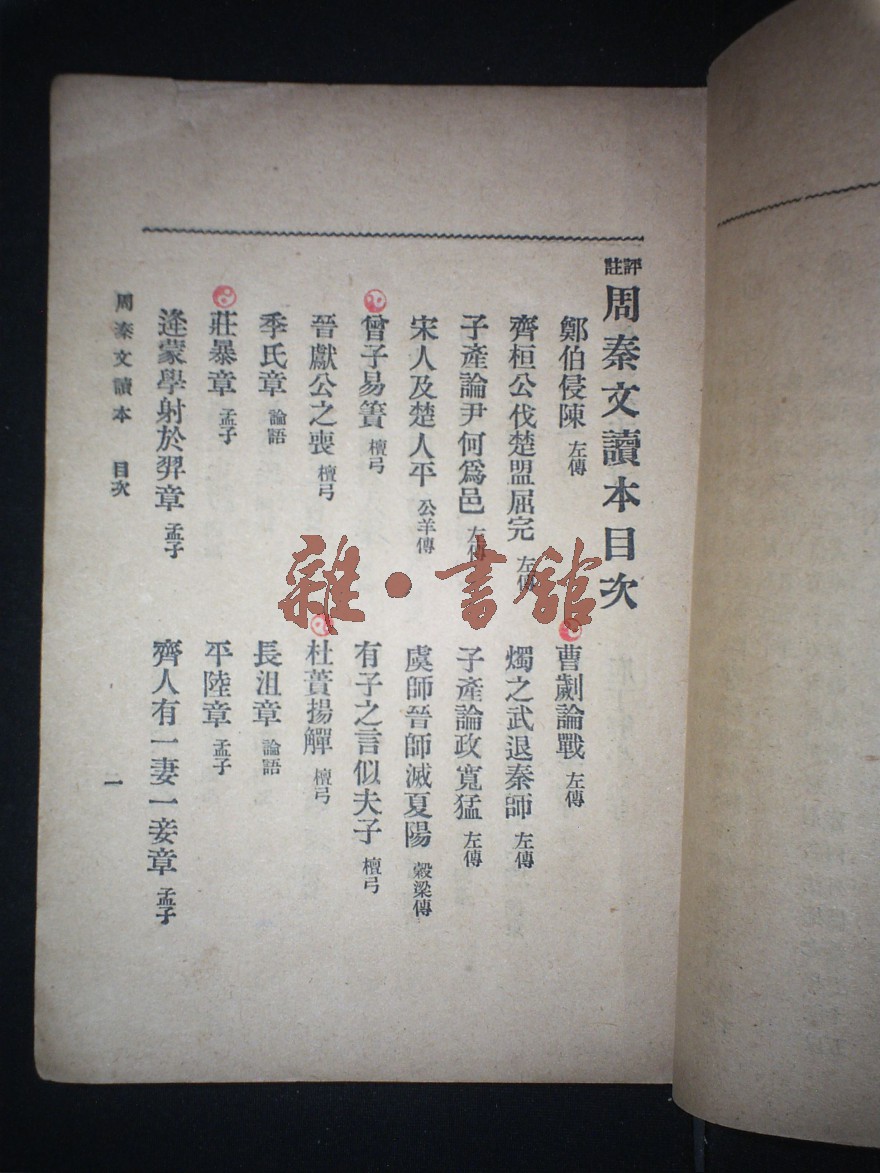 評註周秦文讀本目次
鄭伯侵陳 左傳
曹劌論戰 左傳
齊桓公伐楚盟屈完 左傳
燭之武退秦師 左傳
子產論尹何爲邑 左傳
子產論政寬猛 左傳
宋人及楚人平 公羊傳
虞師晉師滅夏陽 穀梁傳
曾子易簀 檀弓
有子之言似夫子 檀弓
晉獻公之喪 檀弓
杜蕢揚觶 檀弓
季氏章 論語
長沮章 論語
莊暴章 孟子
平陸章 孟子
逄蒙學射於羿章 孟子
齊人有一妻一妾章 孟子
周秦文讀本 目次 一
雜·書館